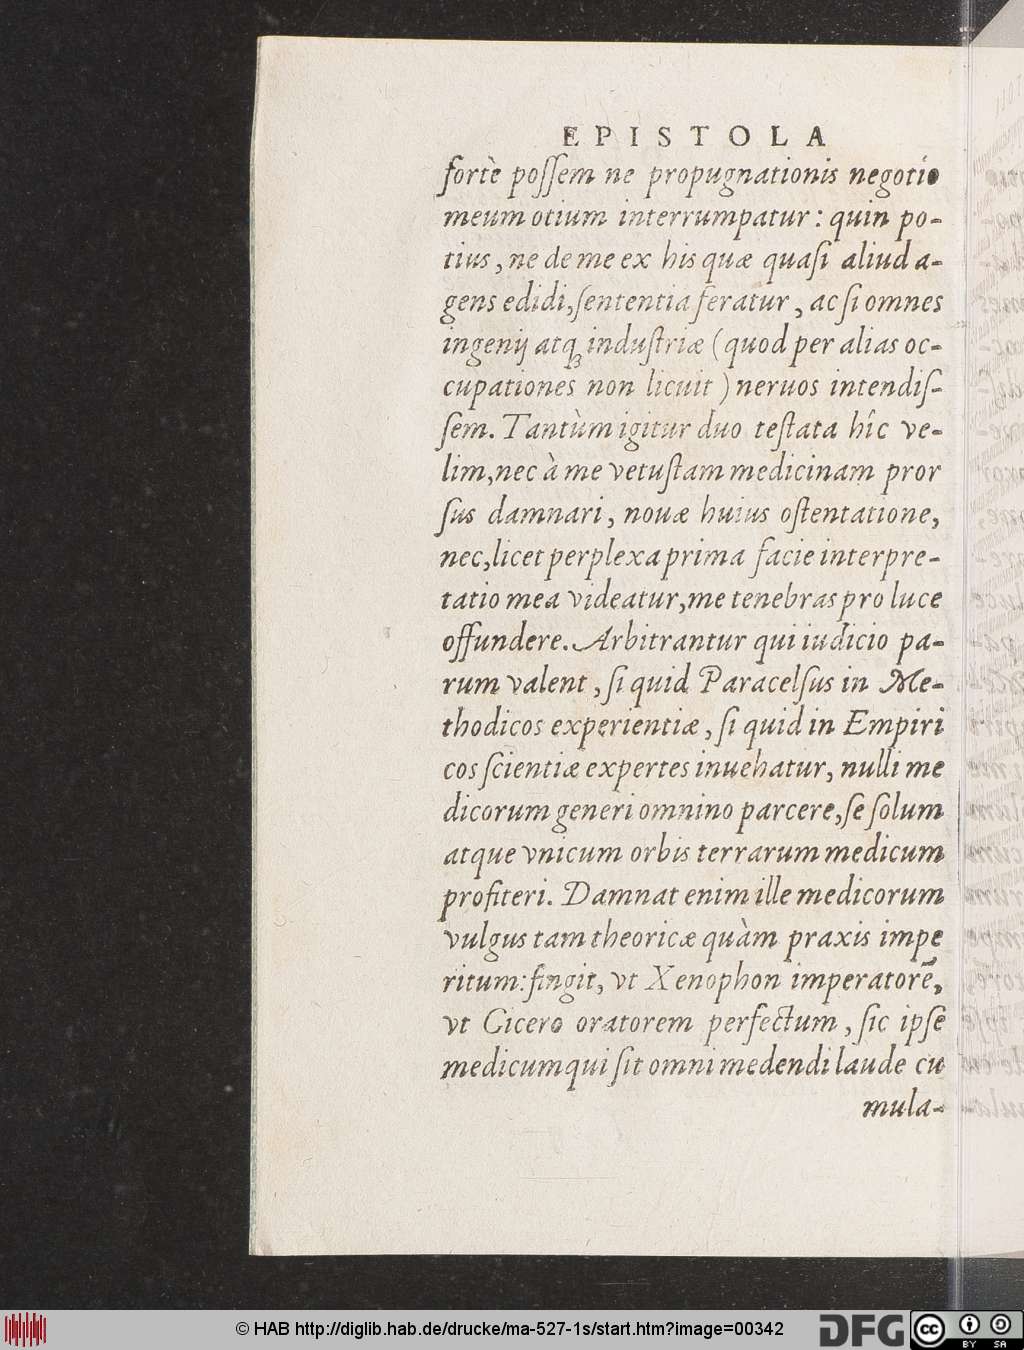 EPISTOLA
fortè poſſem ne propugnationis negotio
meum otium interrumpatur: quin po-
tius, ne de me ex his quæ quaſi aliud a-
gens edidi, ſententia feratur, ac ſi omnes
ingenij atq; induſtriæ (quod per alias oc-
cupationes non licuit) neruos intendiſ-
ſem. Tantùm igitur duo teſtata hîc ve-
lim, nec à me vetuſtam medicinam pror
ſus damnari, nouæ huius oſtentatione,
nec, licet perplexa prima facie interpre-
tatio mea videatur, me tenebras pro luce
offundere. Arbitrantur qui iudicio pa-
rum valent, ſi quid Paracelſus in Me-
thodicos experientiæ, ſi quid in Empiri
cos ſcientiæ expertes inuehatur, nulli me
dicorum generi omnino parcere, ſe ſolum
atque vnicum orbis terrarum medicum
profiteri. Damnat enim ille medicorum
vulgus tam theoricæ quàm praxis impe
ritum: fingit, vt Xenophon imperatorẽ,
vt Cicero oratorem perfectum, ſic ipſe
medicum qui ſit omni medendi laude cu
mula-
© HAB http://diglib.hab.de/drucke/ma-527-1s/start.htm?image=00342
DFG
cc
BY SA